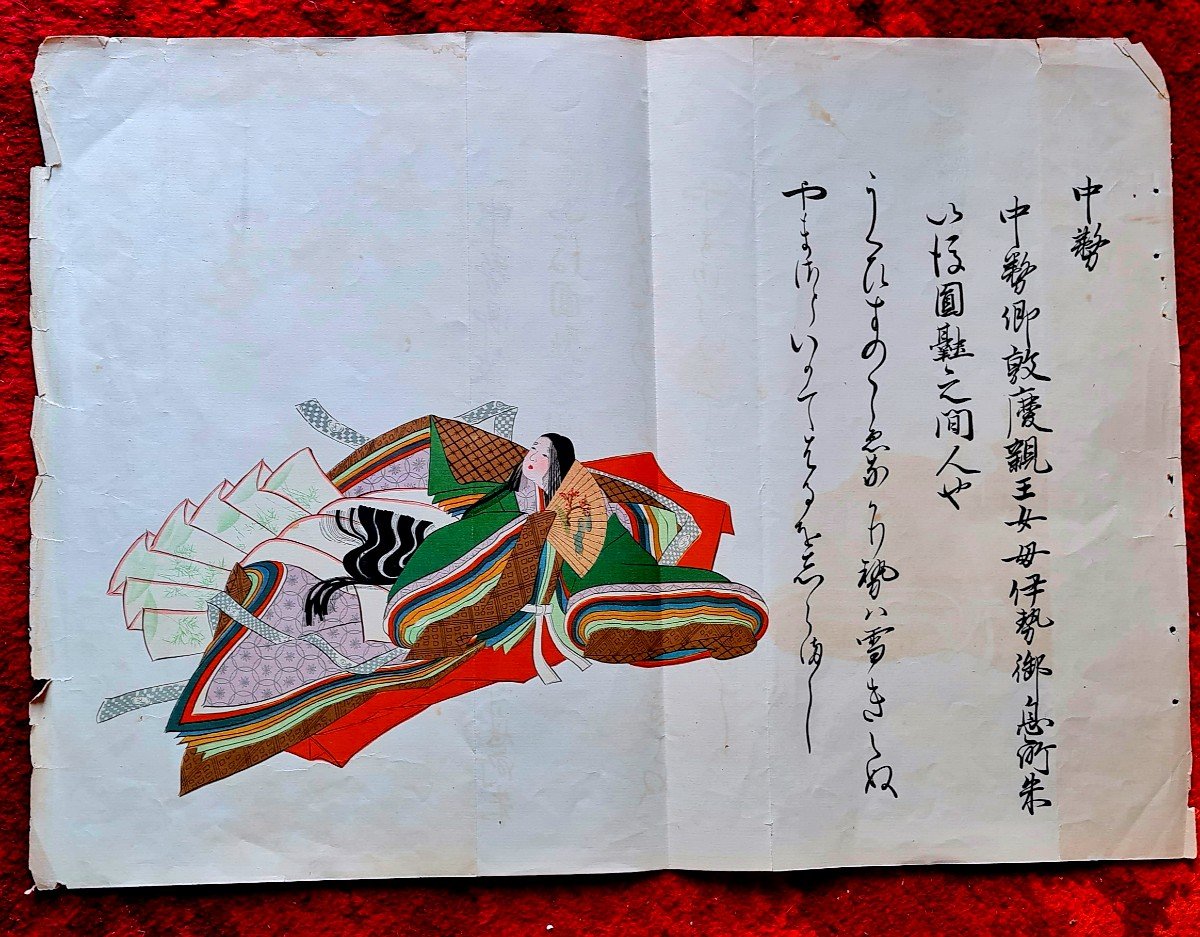 中務
中務卿敦慶親王女母伊勢御息所朱
以後圓融之間人也
うくひすのこゑなかり勢ハ雪きえぬ
やまさといかてはるを志らまし